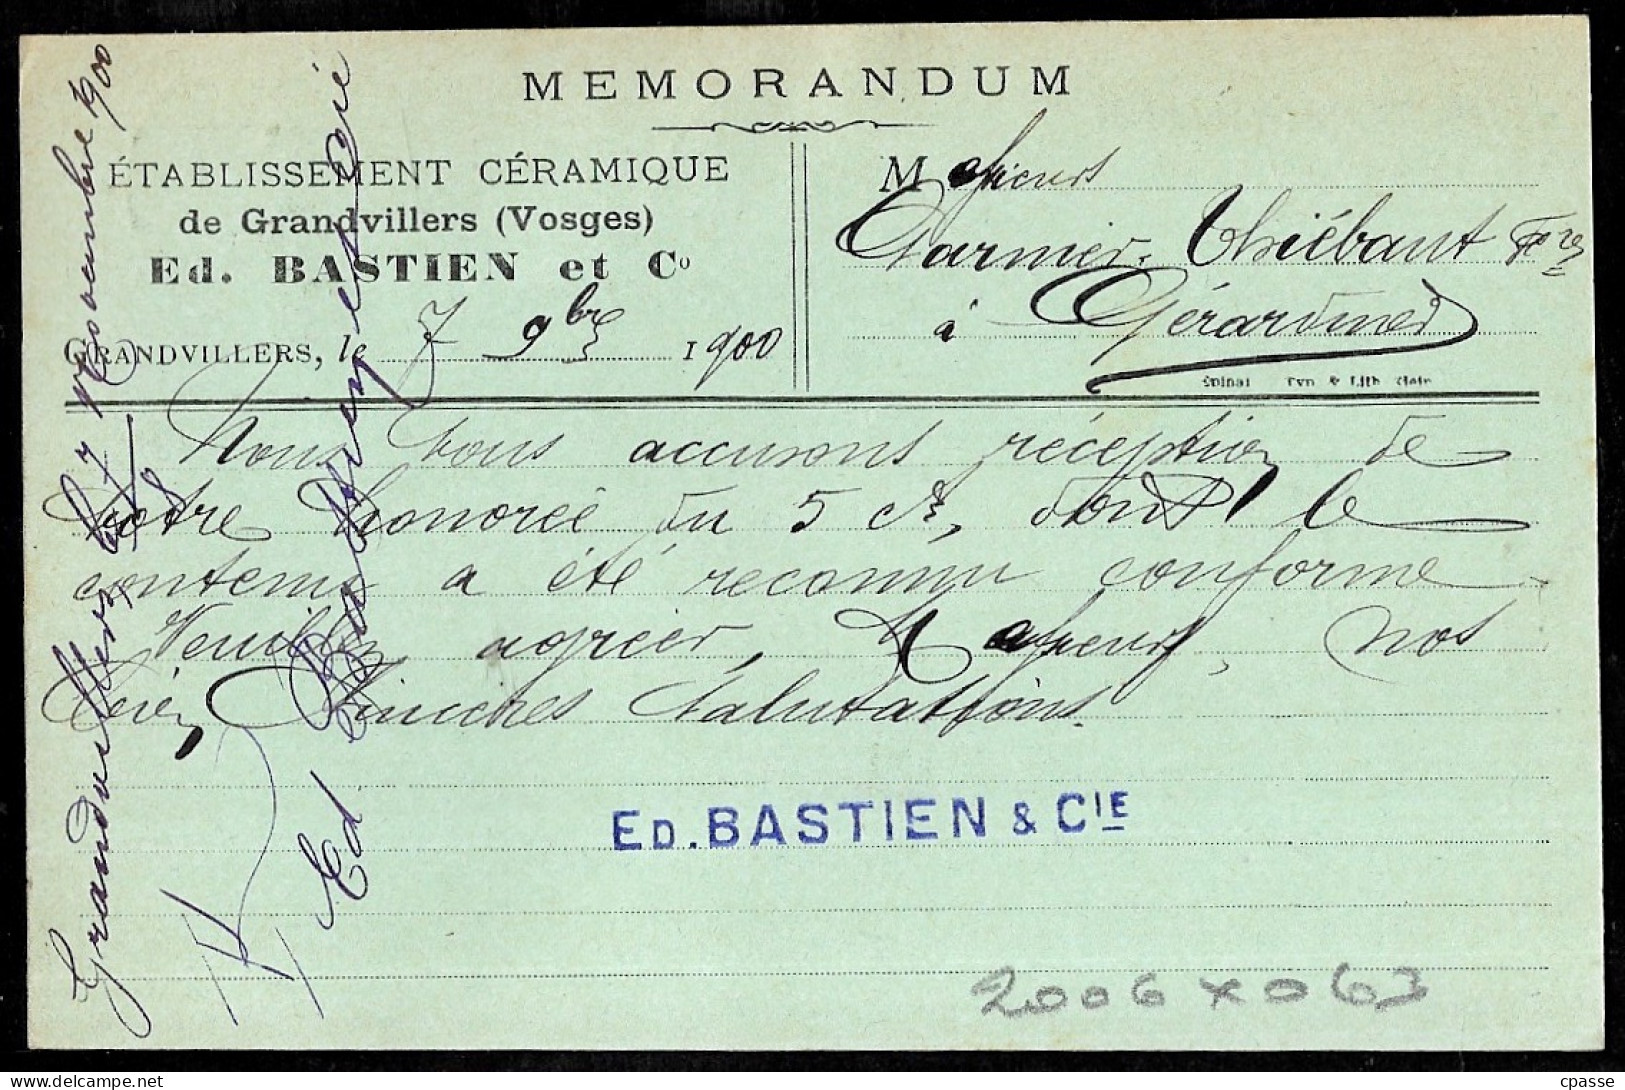 MEMORANDUM
ÉTABLISSEMENT CÉRAMIQUE
de Grandvillers (Vosges)
Ed. BASTIEN et Cº
GRANDVILLERS, le 7 9bre 1900
Messieurs
Garnier Thiébaut Fres
à Gérardmer
Epinal Typ & Lith Klein
Nous vous accusons réception de
votre honorée du 5 ct, dont le
contenu a été reconnu conforme
Veuillez agréer, Messieurs, nos
bien sincères salutations.
ED. BASTIEN & CIE
2006 x 063
Grandvillers 7 Novembre 1900
Ed Bastien et Cie